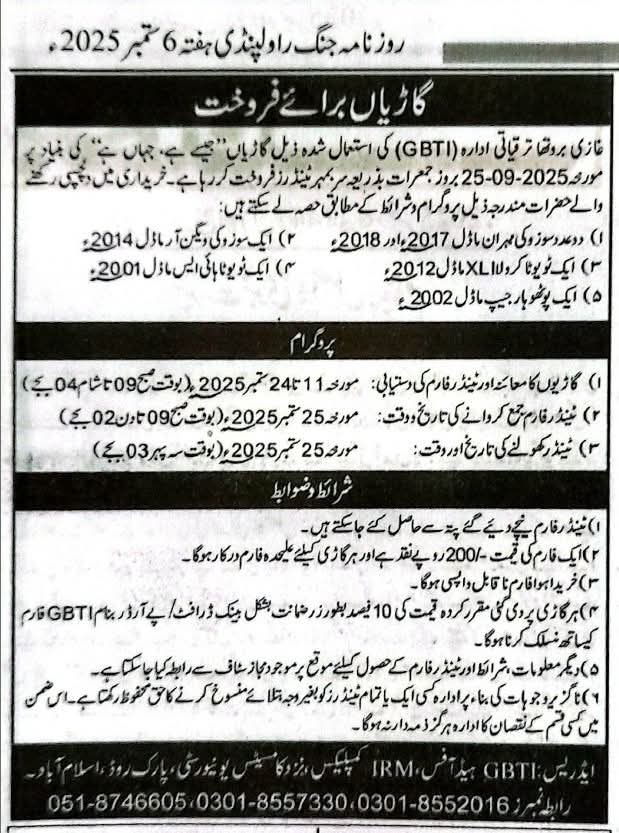 روزنامہ جنگ راولپنڈی ہفتہ 6 ستمبر 2025ء
گاڑیاں برائے فروخت
غازی بروتھا ترقیاتی ادارہ (GBTI) کی استعمال شدہ ذیل گاڑیاں ”جیسے ہے، جہاں ہے“ کی بنیاد پر
مورخہ 25-09-2025 بروز جمعرات بذریعہ سربمہر ٹینڈرز فروخت کر رہا ہے۔ خریداری میں دلچسپی رکھنے
والے حضرات مندرجہ ذیل پروگرام و شرائط کے مطابق حصہ لے سکتے ہیں:
۱) دو عدد سوزوکی مہران ماڈل 2017ء اور 2018ء ۲) ایک سوزوکی ویگن آر ماڈل 2014ء
۳) ایک ٹویوٹا کرولا XLI ماڈل 2012ء ۴) ایک ٹویوٹا ہائی ایس ماڈل 2001ء
۵) ایک پوٹھوہار جیپ ماڈل 2002ء
پروگرام
۱) گاڑیوں کا معائنہ اور ٹینڈر فارم کی دستیابی: مورخہ 11 تا 24 ستمبر 2025ء (بوقت صبح 09 تا شام 04 بجے)
۲) ٹینڈر فارم جمع کروانے کی تاریخ و وقت: مورخہ 25 ستمبر 2025ء (بوقت صبح 09 تا دن 02 بجے)
۳) ٹینڈر کھولنے کی تاریخ اور وقت: مورخہ 25 ستمبر 2025ء (بوقت سہ پہر 03 بجے)
شرائط و ضوابط
۱) ٹینڈر فارم نیچے دیئے گئے پتہ سے حاصل کئے جا سکتے ہیں۔
۲) ایک فارم کی قیمت -/200 روپے نقد ہے اور ہر گاڑی کیلئے علیحدہ فارم درکار ہوگا۔
۳) خریدا ہوا فارم ناقابل واپسی ہوگا۔
۴) ہر گاڑی پر دی گئی مقرر کردہ قیمت کی 10 فیصد بطور زر ضمانت بشکل بینک ڈرافٹ/پے آرڈر بنام GBTI فارم
کیساتھ منسلک کرنا ہوگا۔
۵) دیگر معلومات، شرائط اور ٹینڈر فارم کے حصول کیلئے موقع پر موجود مجاز سٹاف سے رابطہ کیا جا سکتا ہے۔
۶) ناگزیر وجوہات کی بناء پر ادارہ کسی ایک یا تمام ٹینڈرز کو بغیر وجہ بتلائے منسوخ کرنے کا حق محفوظ رکھتا ہے۔ اس ضمن
میں کسی قسم کے نقصان کا ادارہ ہرگز ذمہ دار نہ ہوگا۔
ایڈریس: GBTI ہیڈ آفس، IRM کمپلیکس، نزد کامسیٹس یونیورسٹی، پارک روڈ، اسلام آباد۔
رابطہ نمبرز 051-8746605، 0301-8557330، 0301-8552016